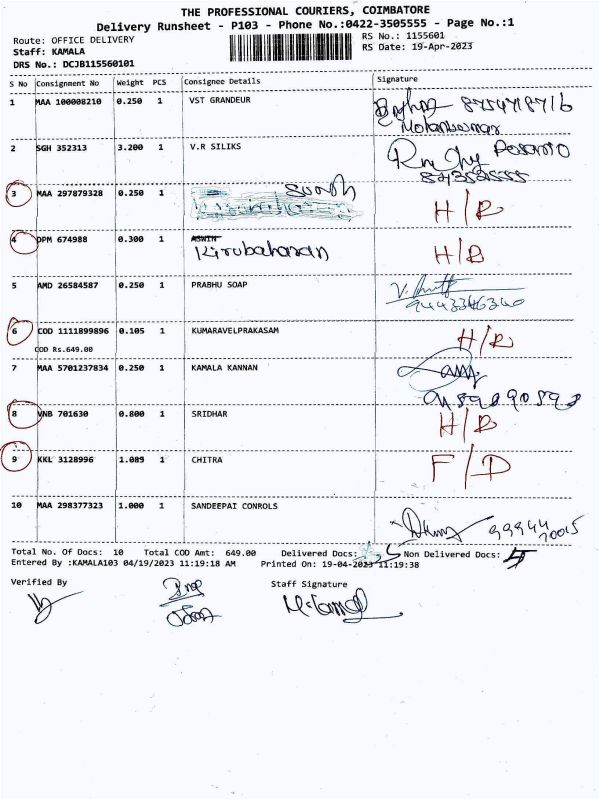 THE PROFESSIONAL COURIERS, COIMBATORE
Delivery Runsheet - P103 - Phone No.:0422-3505555 - Page No.:1
Route: OFFICE DELIVERY RS No.: 1155601
Staff: KAMALA RS Date: 19-Apr-2023
DRS No.: DCJB115560101
S No Consignment No Weight PCS Consignee Details Signature
1 MAA 100008210 0.250 1 VST GRANDEUR
2 SGH 352313 3.200 1 V.R SILIKS
3 MAA 297879328 0.250 1
H/R
4 DPM 674988 0.300 1 ASWIN H/R
Kirubaharan
5 AMD 26584587 0.250 1 PRABHU SOAP
9443346340
6 COD 1111899896 0.105 1 KUMARAVELPRAKASAM H/R
COD Rs.649.00
7 MAA 5701237834 0.250 1 KAMALA KANNAN
8 VNB 701630 0.800 1 SRIDHAR H/R
9 KKL 3128996 1.085 1 CHITRA F/D
10 MAA 298377323 1.000 1 SANDEEPAI CONROLS
99944
70015
Total No. Of Docs: 10 Total COD Amt: 649.00 Delivered Docs: 5 Non Delivered Docs:
Entered By :KAMALA103 04/19/2023 11:19:18 AM Printed On: 19-04-2023 11:19:38
Verified By Staff Signature